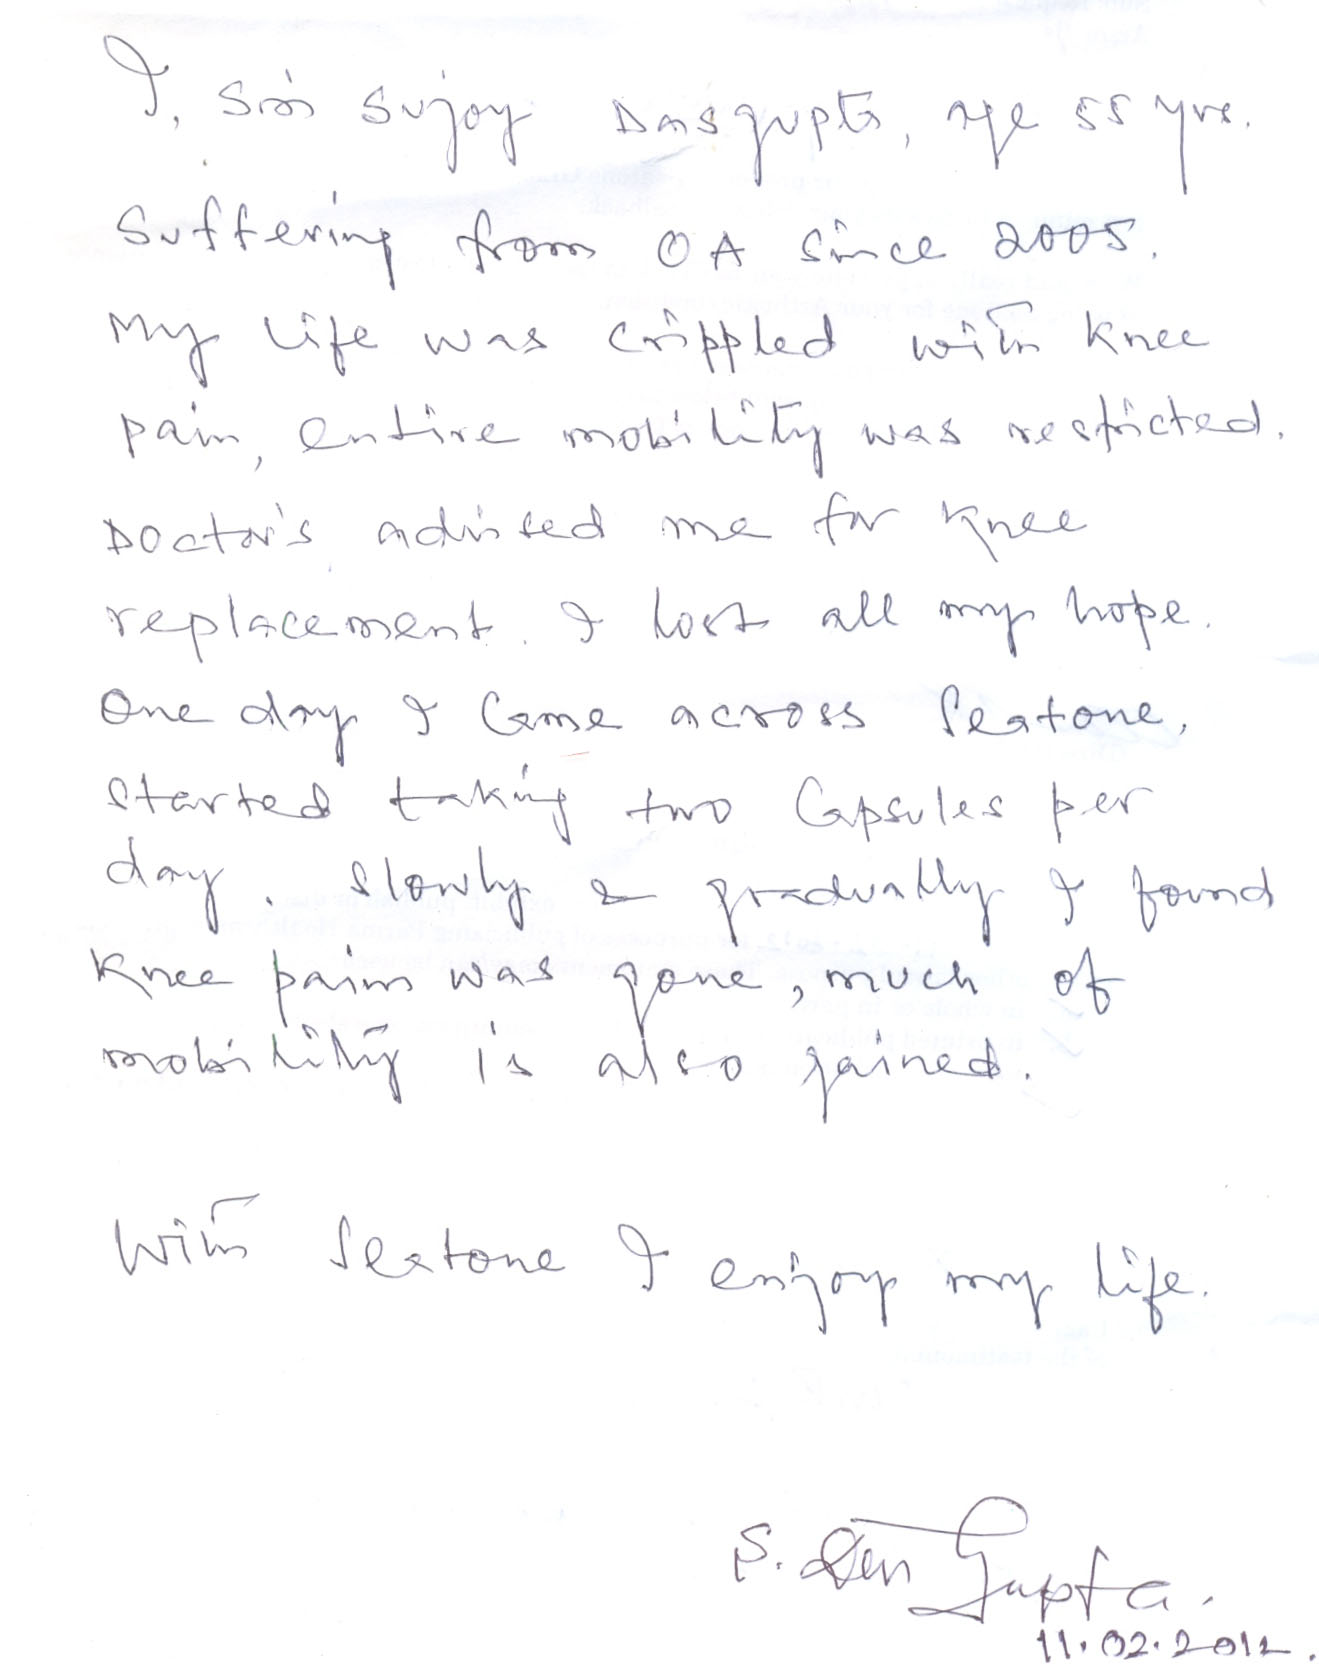 I, Sri Sujoy Dasgupta, age 55 yrs.
Suffering from OA Since 2005.
My life was crippled with knee
pain, entire mobility was restricted.
Doctor's advised me for knee
replacement. I lost all my hope.
One day I came across Seatone,
started taking two Capsules per
day. Slowly & gradually I found
knee pain was gone, much of
mobility is also gained.
With Seatone I enjoy my life.
S. Das Gupta.
11.02.2012.